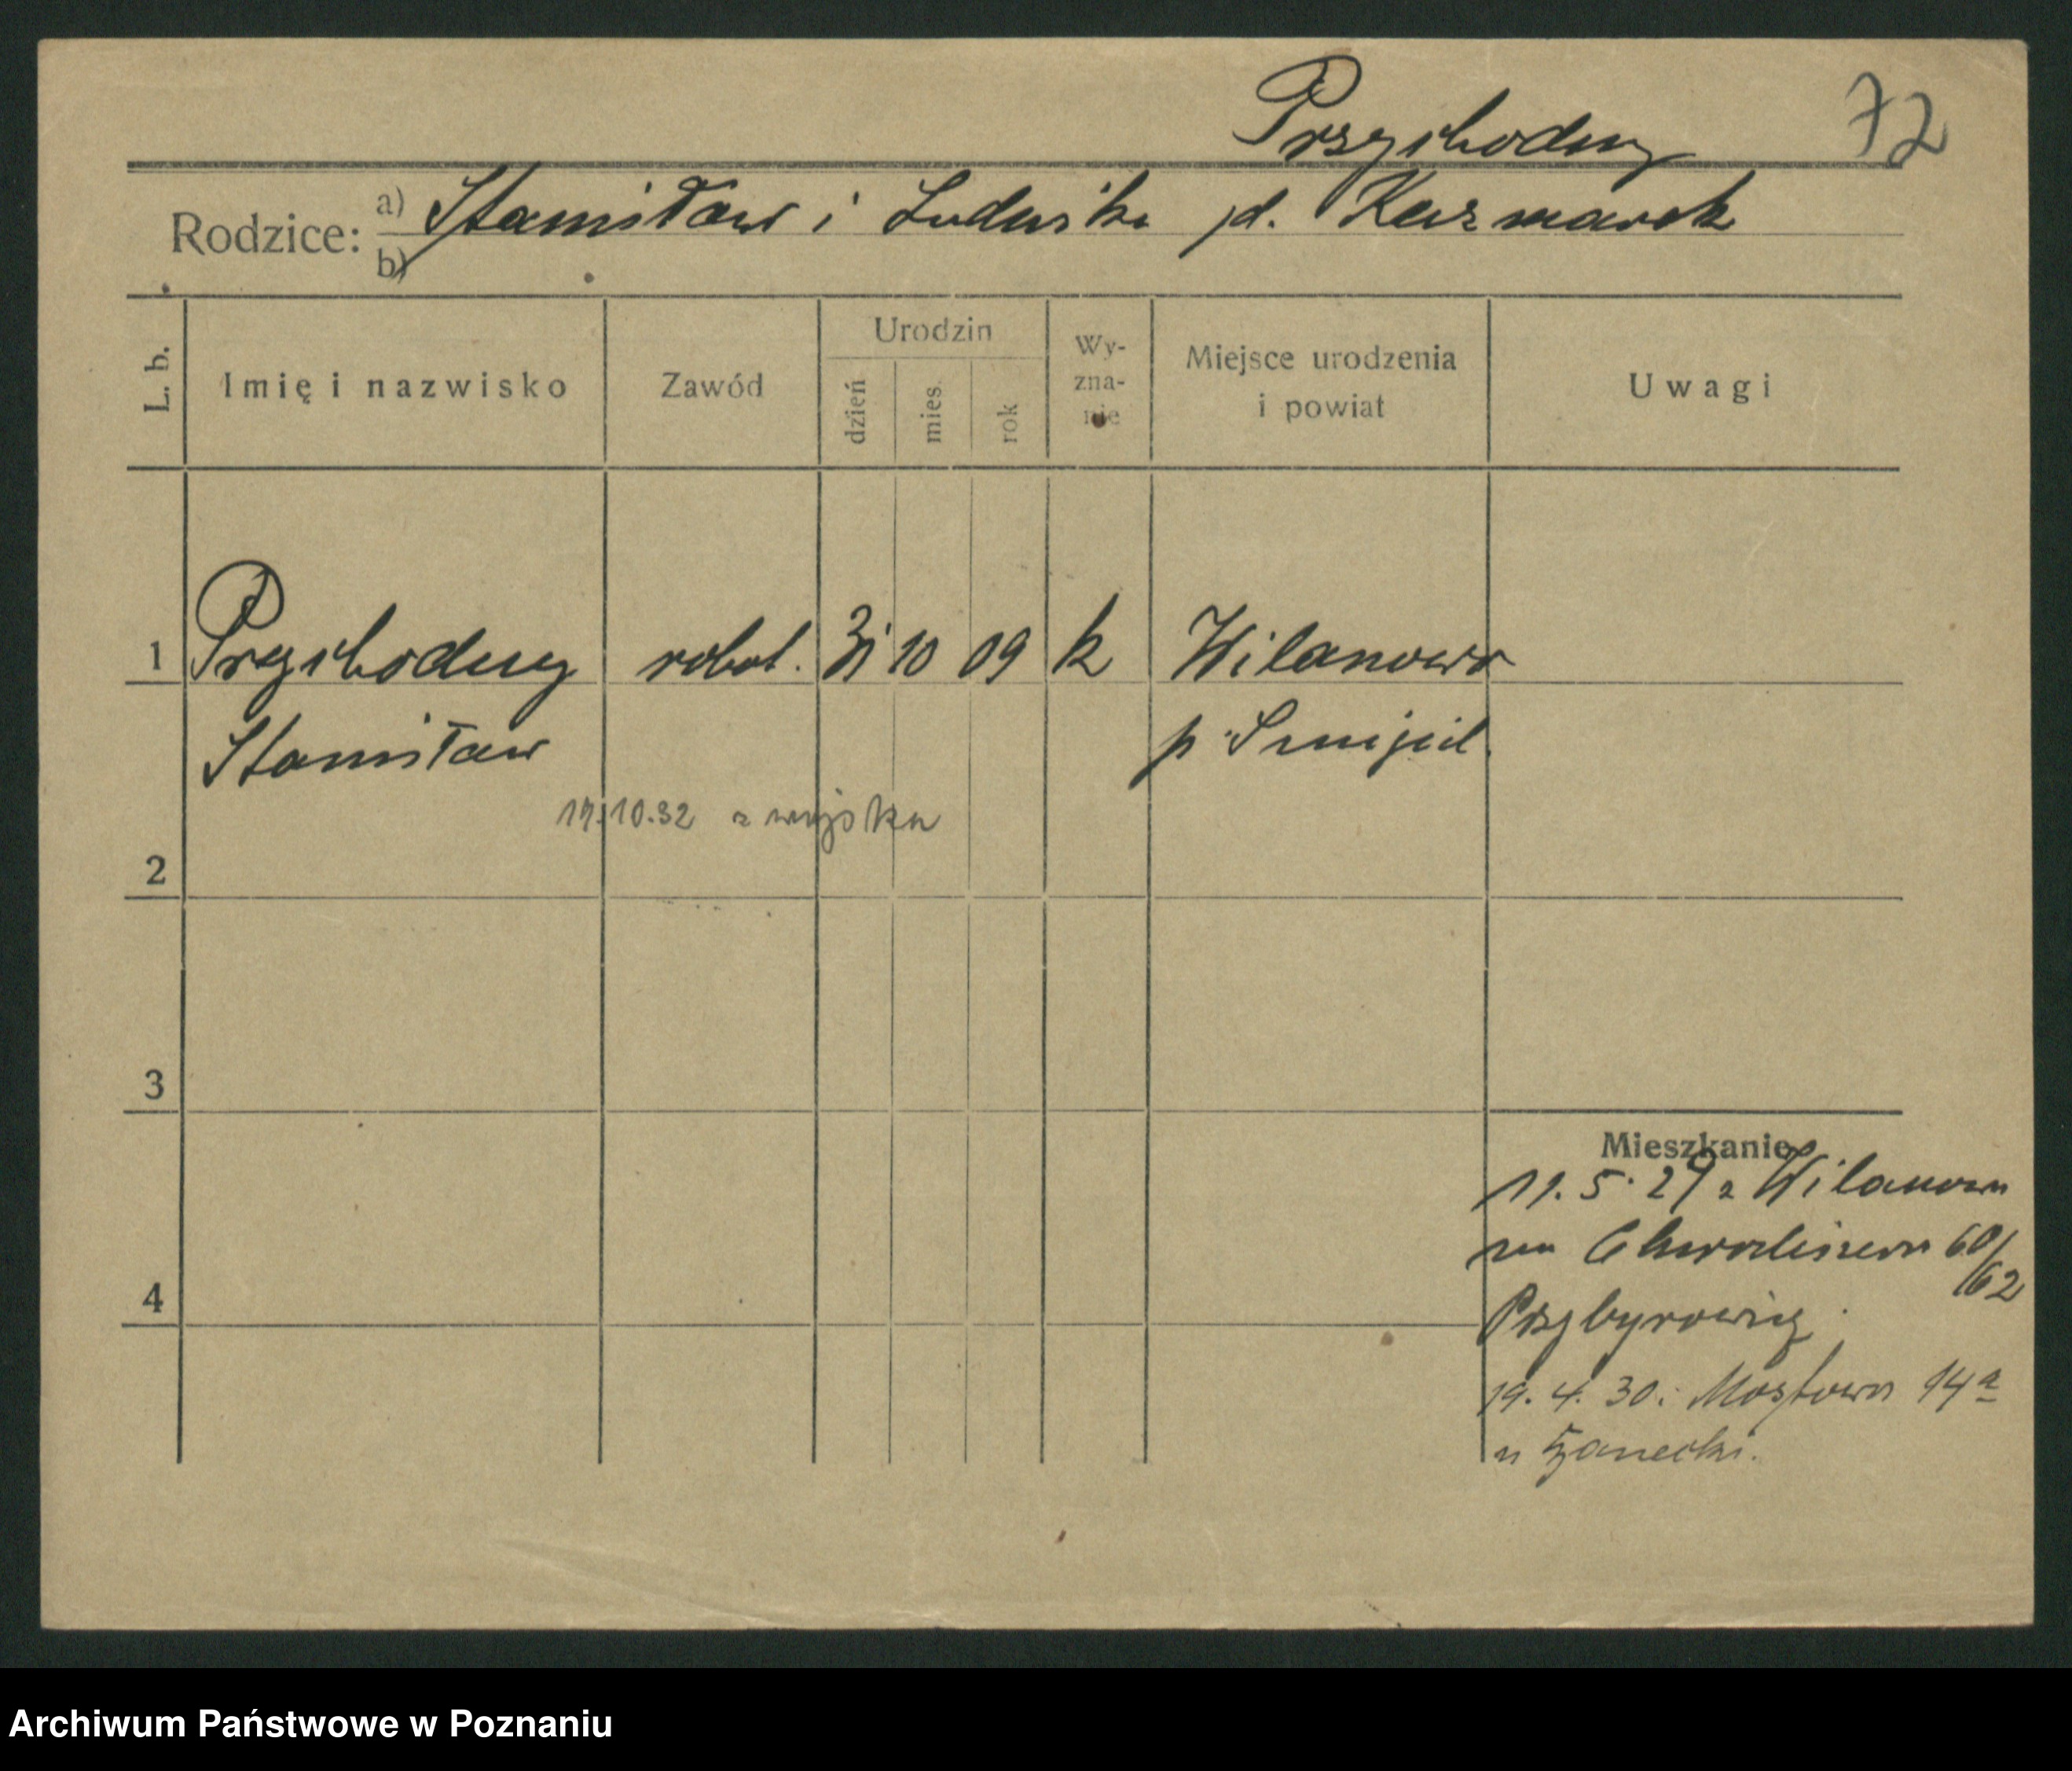 Przychodny 72
Rodzice: a) Stanisław i Ludwika d. Kaczmarek
b)
L. b. Imię i nazwisko Zawód Urodzin dzień mies. rok Wy-zna-nie Miejsce urodzenia i powiat Uwagi
1 Przychodny robot. 31 10 09 k Wilanowo
Stanisław p. Śmigiel.
17.10.32 z wojska
2
3
4
Mieszkanie
11.5.29 z Wilanowa
na Chwaliszewo 60/62
19.4.30. Mostowa 14a
u
Archiwum Państwowe w Poznaniu